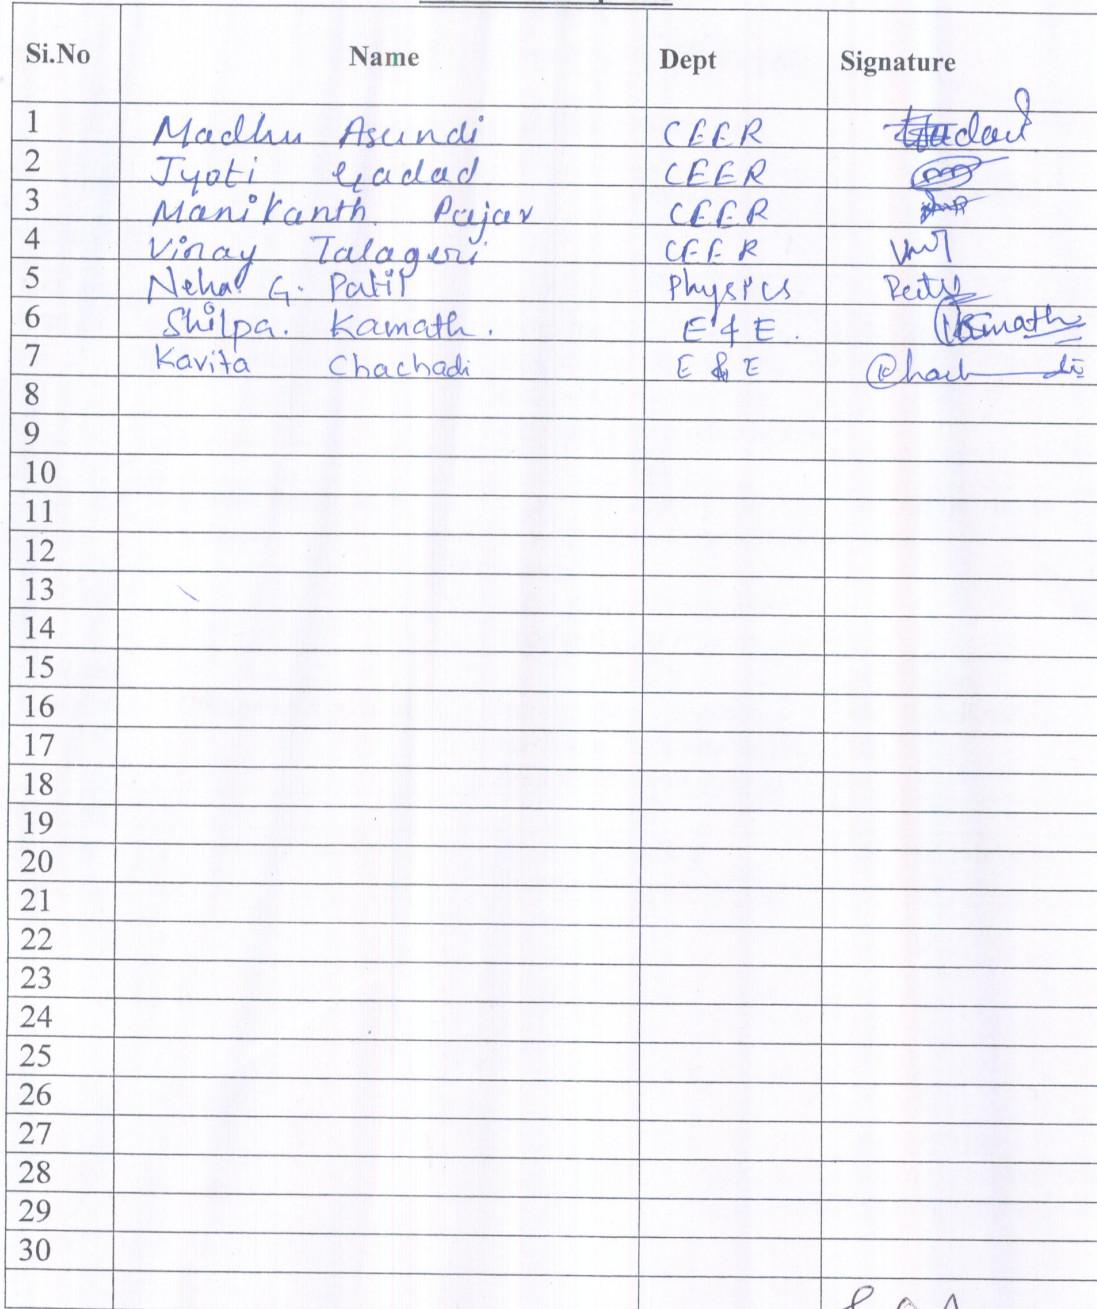 Si.No Name Dept Signature
1 Madhu Asundi CEER
2 Jyoti Gadad CEER
3 Manikanth Pujar CEER
4 Vinay Talageri CEER
5 Neha G. Patil Physics
6 Shilpa. Kamath. E & E.
7 Kavita Chachadi E & E
8
9
10
11
12
13
14
15
16
17
18
19
20
21
22
23
24
25
26
27
28
29
30